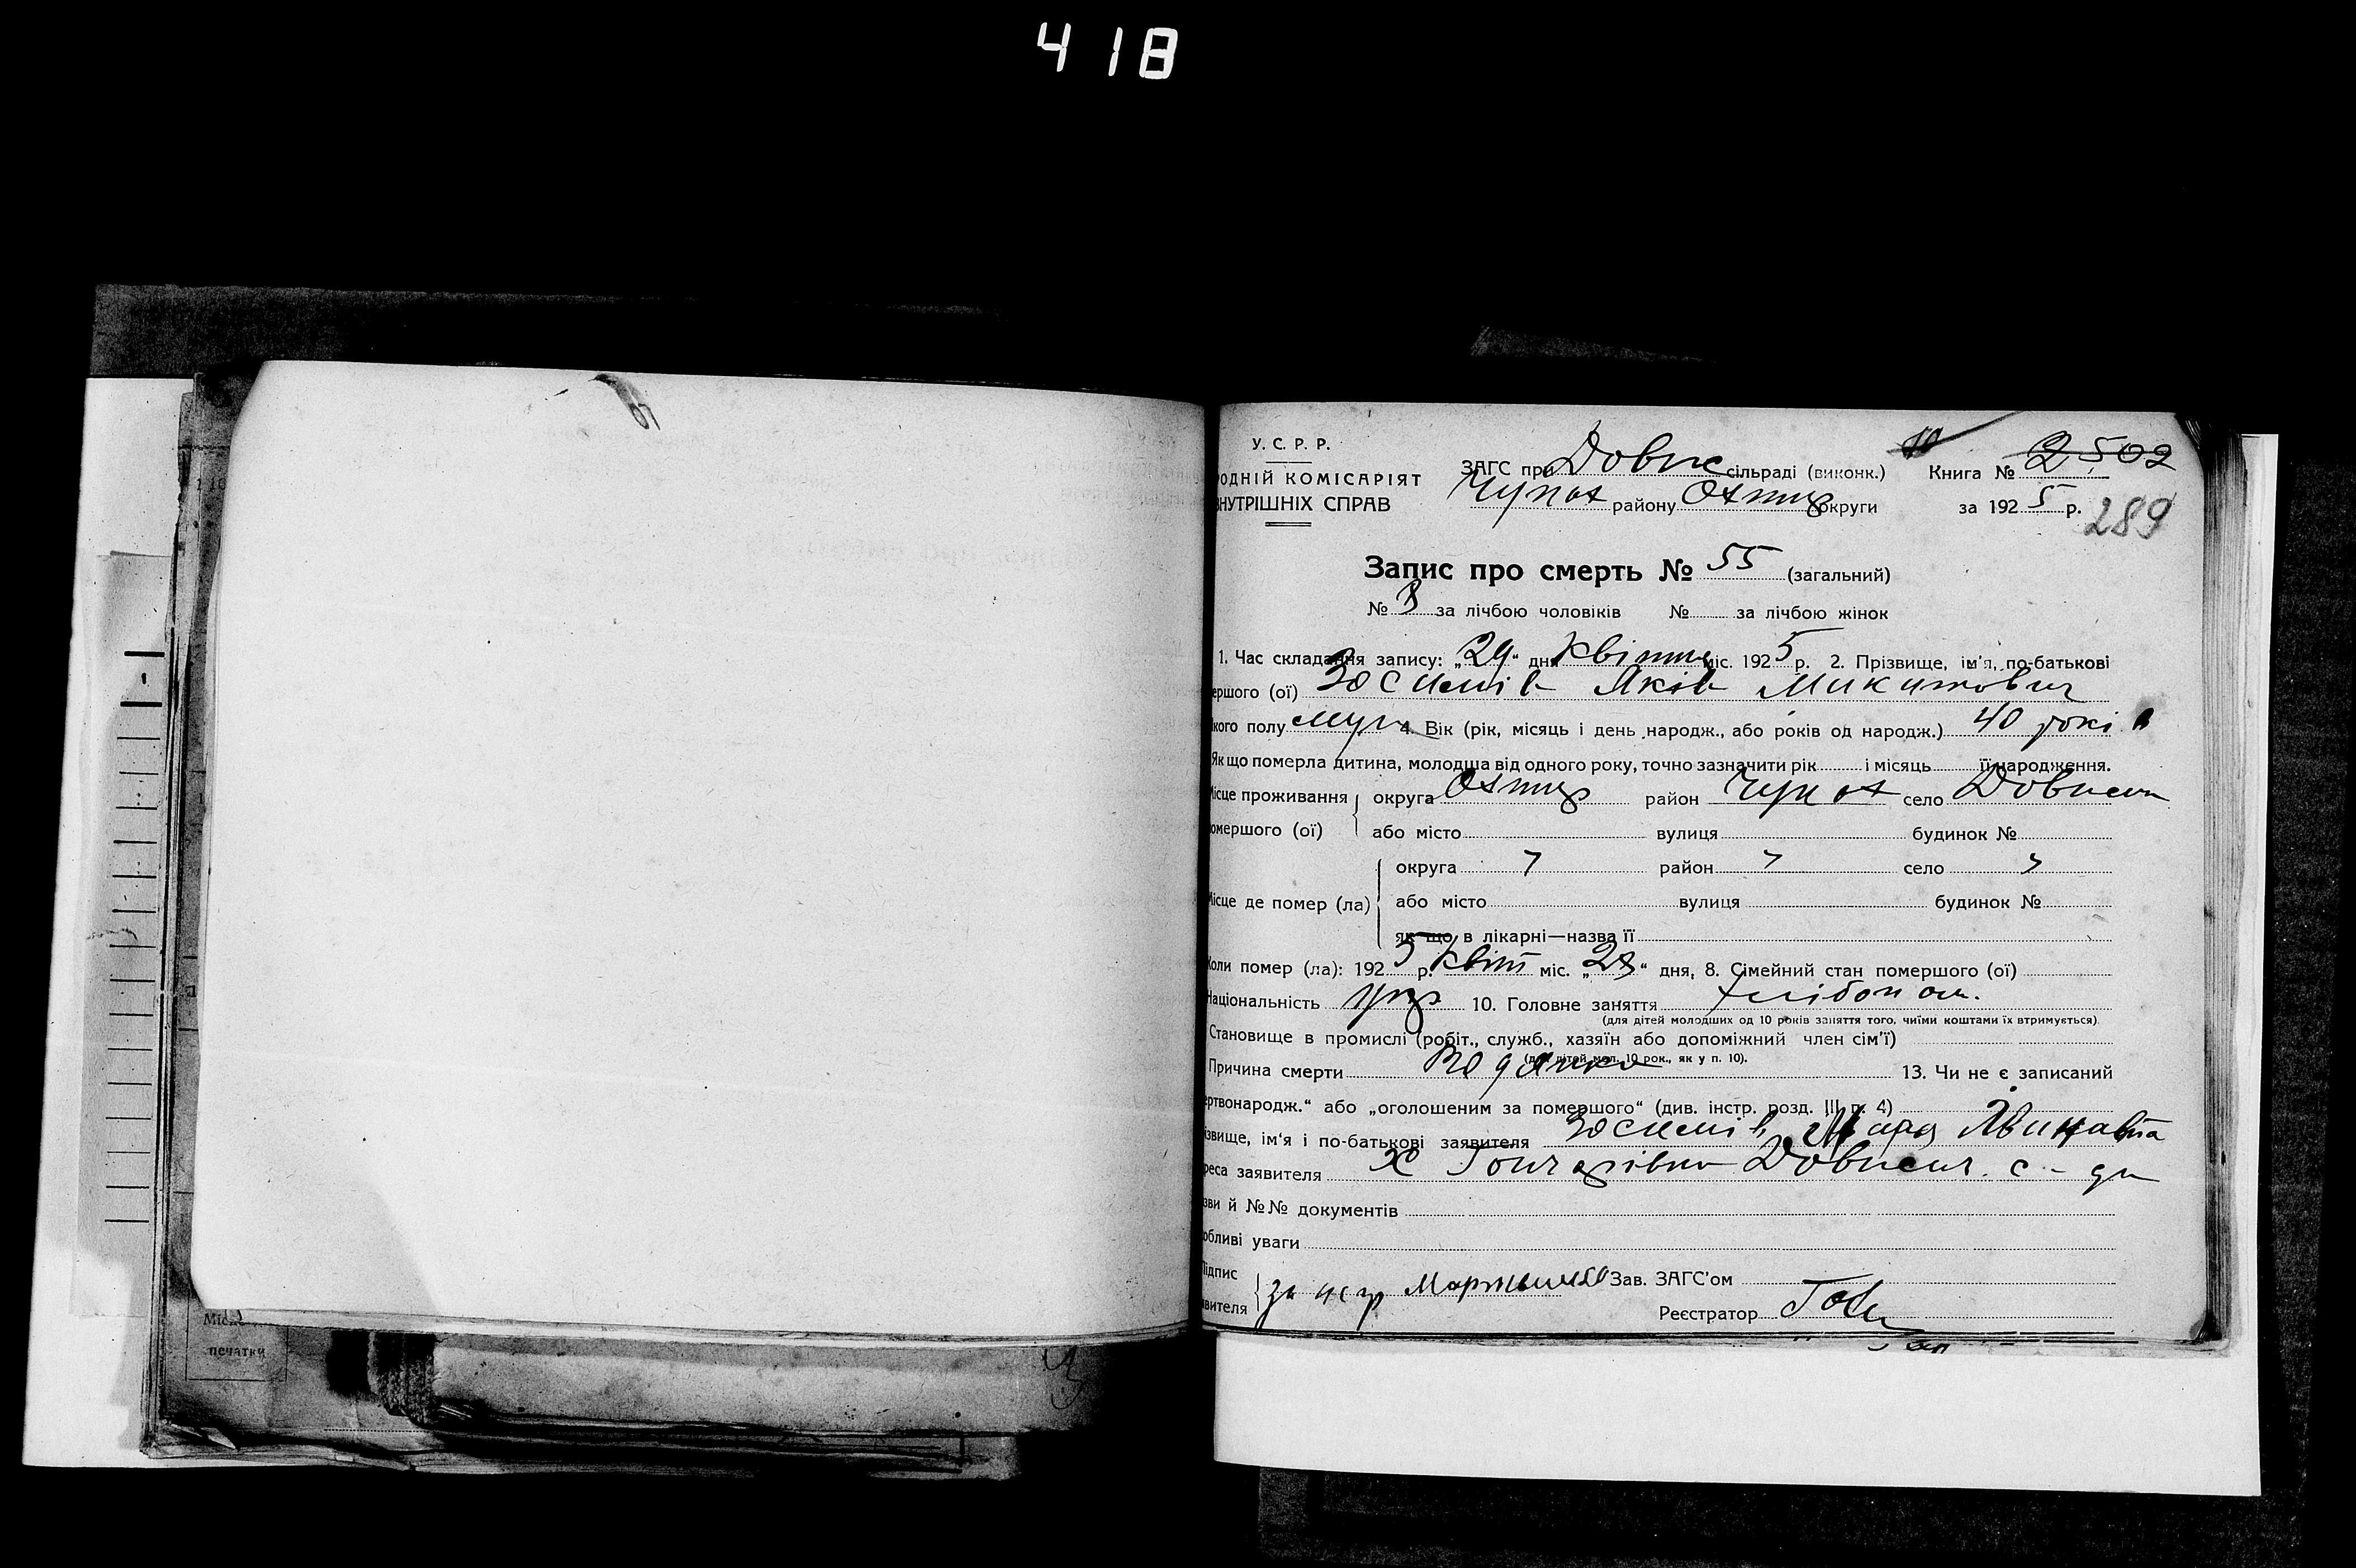 418
У. С. Р. Р.
ОДНІЙ КОМІСАРІЯТ
НУТРІШНІХ СПРАВ
ЗАГС при Довж сільраді (виконк.)
Чупах району Охтир округи
Книга № 2502
за 1925 р.
289
Запис про смерть № 55 (загальний)
№ 8 за лічбою чоловіків № за лічбою жінок
1. Час складання запису: „29“ дня Квітня міс. 1925 р. 2. Прізвище, ім'я, по-батькові
ершого (ої) Яків Микитович
кого полу муж 4. Вік (рік, місяць і день народж., або років од народж.) 40 років
Якщо померла дитина, молодша від одного року, точно зазначити рік і місяць її народження.
ісце проживання округа Охтир район Чупах село
омершого (ої) або місто вулиця будинок №
округа " район " село "
ісце де помер (ла) або місто вулиця будинок №
як що в лікарні—назва її
оли помер (ла): 1925 р. Квіт міс. „28“ дня, 8. Сімейний стан помершого (ої)
аціональність укр 10. Головне заняття хлібопаш.
(для дітей молодших од 10 років заняття того, чиїми коштами їх втримується)
Становище в промислі (робіт., служб., хазяїн або допоміжний член сім'ї)
(для дітей мол. 10 рок., як у п. 10).
Причина смерти Водянка 13. Чи не є записаний
ертвонародж.“ або „оголошеним за померлого“ (див. інстр. розд. III п. 4)
ізвище, ім'я і по-батькові заявителя
реса заявителя Х Гончарівка
зви й №№ документів
обливі уваги
ідпис за негр Зав. ЗАГС'ом
вителя Реєстратор
Міс
печатки